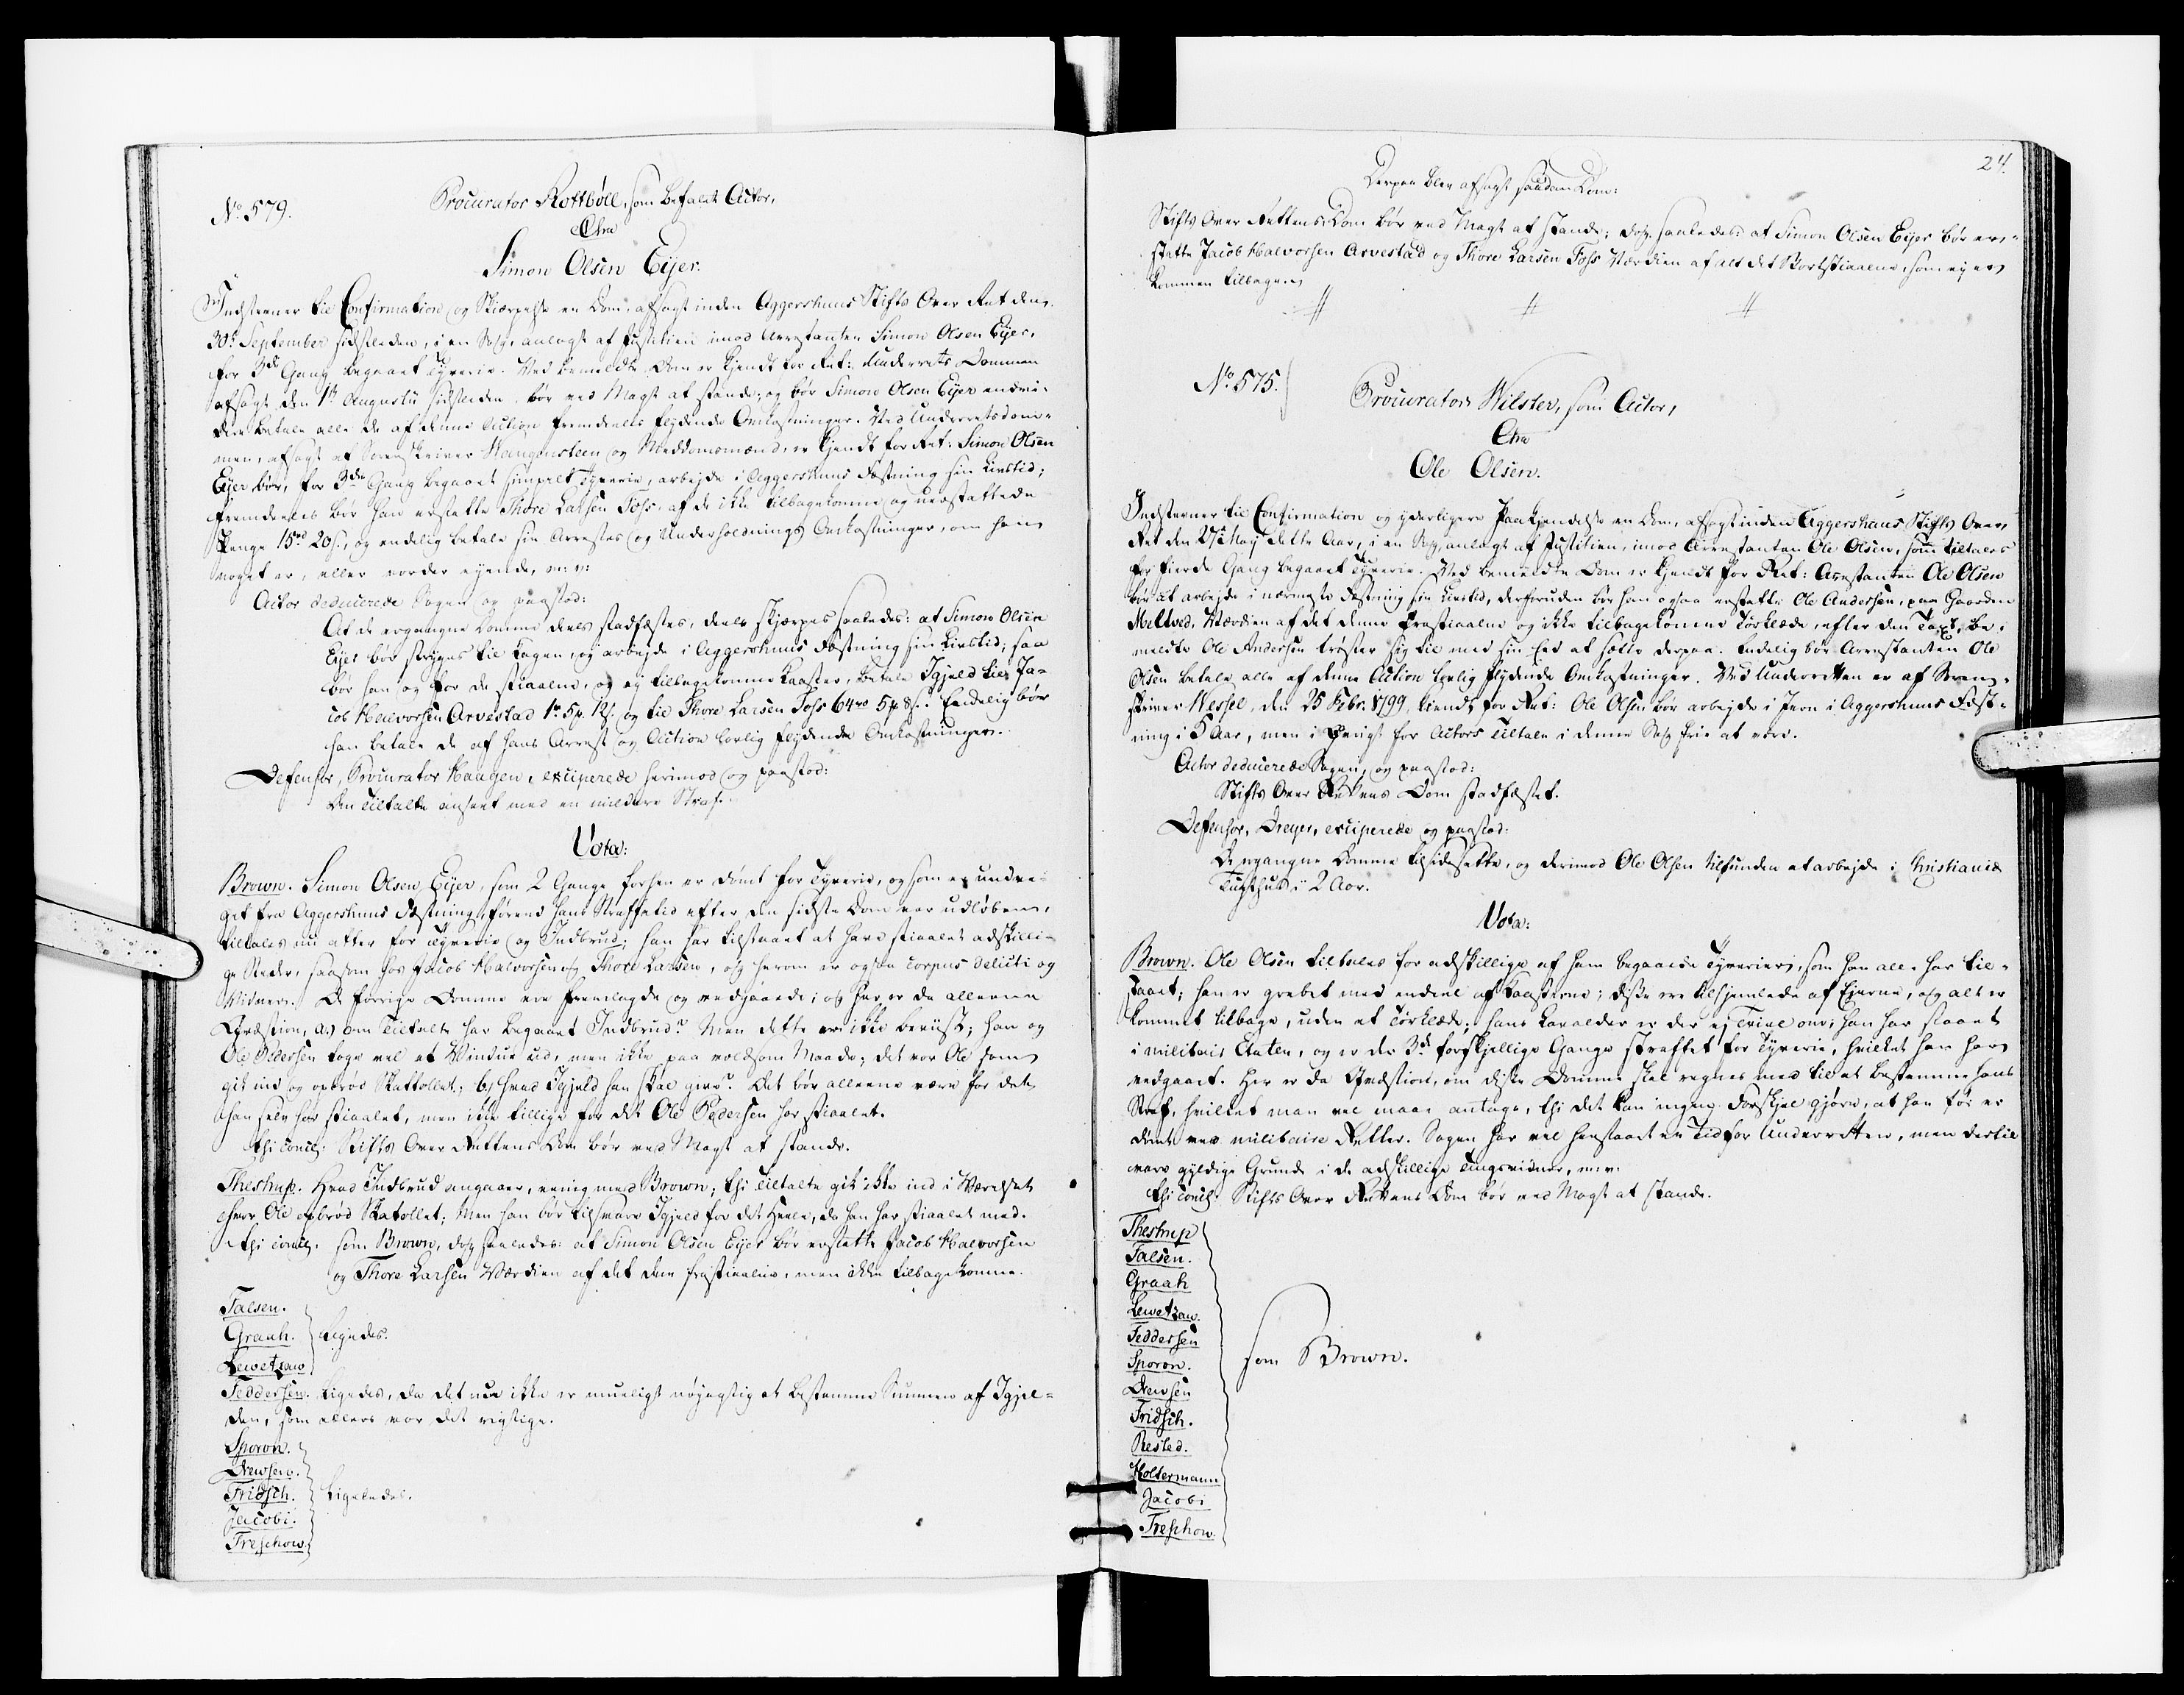 No 579.
Procurator Rottbøll, som befalet Actor,
Ctra
Simon Olsen Eijer.
Indstevner til Confirmation og Skiærpelse en Dom, afsagt inden Aggershuus Stifts Over Ret den
30te September sidstleden, i en Sag, anlagt af Justitien imod Arrestanten Simon Olsen Eijer,
for 3die Gang begaaet Tyverie. Ved bemeldte Dom er kjendt for Ret: Underrets Dommen
afsagt den 1te Augustii sidstleden bør ved Magt at stande; og bør Simon Olsen Eijer endvi-
dere betale alle de af denne Action fremdeeles flydende Omkostninger. Ved Underretsdom-
men, afsagt af Sorenskriver Wangensteen og Meddomsmænd, er kjendt for Ret: Simon Olsen
Eijer bør, for 3die Gang begaaet simpelt Tyverie, arbejde i Aggershuus Fæstning sin Livstid;
fremdeeles bør han erstatte Thore Larsen Foss, af de ikke tilbagekomne og uerstattede
Penge 15rd 20s., og endelig betale sin Arrestes og Underholdnings Omkostninger, om han
noget er, eller vorder eyende, m: v:
Actor deducerede Sagen og paastod:
At de ergangne Domme deels stadfæstes, deels skjærpes saaledes: at Simon Olsen
Eijer bør stryges til Kagen, og arbejde i Aggershuus Fæstning sin Livstid; saa
bør han og for de stiaalne, og ej tilbagekomne Kaaster, betale Igjeld til Ja-
cob Halvorsen Arvestad 1rd 5p 12s. og til Thore Larsen Foss 64rd 5p 8s. Endelig bør
han betale de af hans Arrest og Action lovlig flydende Omkostninger.
Defensor, Procurator Haagen, exciperede herimod og paastod:
Den Tiltalte anseet med en mildere Straf.
Vota:
Brown. Simon Olsen Eijer, som 2 Gange forhen er dømt for Tyverie, og som er undvi-
get fra Aggershuus Fæstning, førend hans Straffetid efter den sidste Dom var udløben,
tiltales nu atter for Tyverie og Indbrud; han har tilstaaet at have stiaalet adskilli-
ge Steder, saasom hos Jacob Halvorsen og Thore Larsen, og herom er ogsaa corpus delicti og
Vidner. De forrige Domme ere fremlagde og vedgaaede; og her er da alleene
Qvæstion, a.) om Tiltalte har begaaet Indbrud? Men dette er ikke beviist; han og
Ole Pedersen toge vel et Vindue ud, men ikke paa voldsom Maade; det var Ole som
gik ind og opbrød Skattollet; b) hvad Igjeld han skal give? Det bør alleene være for det,
han selv har stiaalet, men ikke tillige for det Ole Pedersen har stiaalet.
thi concl: Stifts Over Rettens Dom bør ved Magt at stande.
Thestrup. Hvad Indbrud angaaer, eenig med Brown; thi Tiltalte gik ikke ind i Værelset
hvor Ole opbrød Skatollet; Men han bør tilsvare Igjeld for det Heele, da han har stiaalet med.
thi concl. som Brown, dog saaledes: at Simon Olsen Eijer bør erstatte Jacob Halvorsen
og Thore Larsen Værdien af det dem frastiaalne, men ikke tilbagekomne.
Falsen.
Graah. Ligedes.
Lewetzaw
Feddersen. Ligedes, da det nu ikke er mueligt nøyagtig at bestemme Summen af Igjel-
den, som ellers var det rigtige.
Sporon.
Drewsen.
Fridsch. Ligeledes.
Jacobi.
Treschow.
24.
Derpaa blev afsagt saadan Dom:
Stifts Over Rettens Dom bør ved Magt at stande; dog saaledes: at Simon Olsen Eijer bør er-
statte Jacob Halvorsen Arvestad og Thore Larsen Foss Værdien af alt det Bortstiaalne, som ej er
kommen tilbage.
No 575.
Procurator Wilster, som Actor,
Ctra
Ole Olsen.
Indstevner til Confirmation og yderligere Paakjendelse en Dom, afsagt inden Aggershuus Stifts Over
Ret den 27de Maj dette Aar, i en Sag, anlagt af Justitien, imod Arrestanten Ole Olsen, som tiltales
for fierde Gang begaaet Tyverie. Ved bemeldte Dom er kjendt for Ret: Arrestanten Ole Olsen
bør at arbejde i nærmeste Fæstning sin Livstid, desforuden bør han ogsaa erstatte Ole Andersen, paa Gaarden
Melbed, Værdien af det denne frastiaalne og ikke tilbagekomne Tørklæde, efter den Taxt, be-
meldte Ole Andersen trøster sig til med sin Eed at sætte derpaa. Endelig bør Arrestanten Ole
Olsen betale alle af denne Action lovlig flydende Omkostninger. Ved Underretten er af Soren-
skriver Wessel, den 25 Febr. 1799, kiendt for Ret: Ole Olsen bør arbejde i Jern i Aggershuus Fæst-
ning i 5 Aar, men i øvrigt for Actors Tiltale i denne Sag frie at være.
Actor deducerede Sagen, og paastod:
Stifts Over Rettens Dom stadfæstet.
Defensor, Dreyer, exciperede og paastod:
De ergangne Domme tilsidesatte, og derimod Ole Olsen tilfunden at arbejde i Christiania
Tugthus i 2 Aar.
Vota:
Brown. Ole Olsen tiltales for adskillige af ham begaaede Tyverier, som han alle har til-
staaet; han er grebet med endeel af Kaasterne; disse ere tilhjemlede af Ejerne, og alt er
kommet tilbage, uden et Tørklæde; hans Lavalder er der ej Tvivl om; han har staaet
i militair Etaten, og er der 3de forskjellige Gange straffet for Tyverie, hvilket han har
vedgaaet. Her er da Qvæstion, om disse Domme skal regnes med til at bestemme hans
Straf, hvilket man vel maae antage, thi det kan ingen Forskjel gjøre, at han før er
dømt ved militaire Retter. Sagen har vel henstaaet en Tid for Underretten, men dertil
vare gyldige Grunde i de adskillige Tingsvidner, m: v:
thi concl: Stifts Over Rettens Dom bør ved Magt at stande.
Thestrup
Falsen.
Graah
Lewetzaw.
Feddersen
Sporon. som Brown.
Drewsen
Fridsch.
Rested.
Holtermann
Jacobi
Treschow.